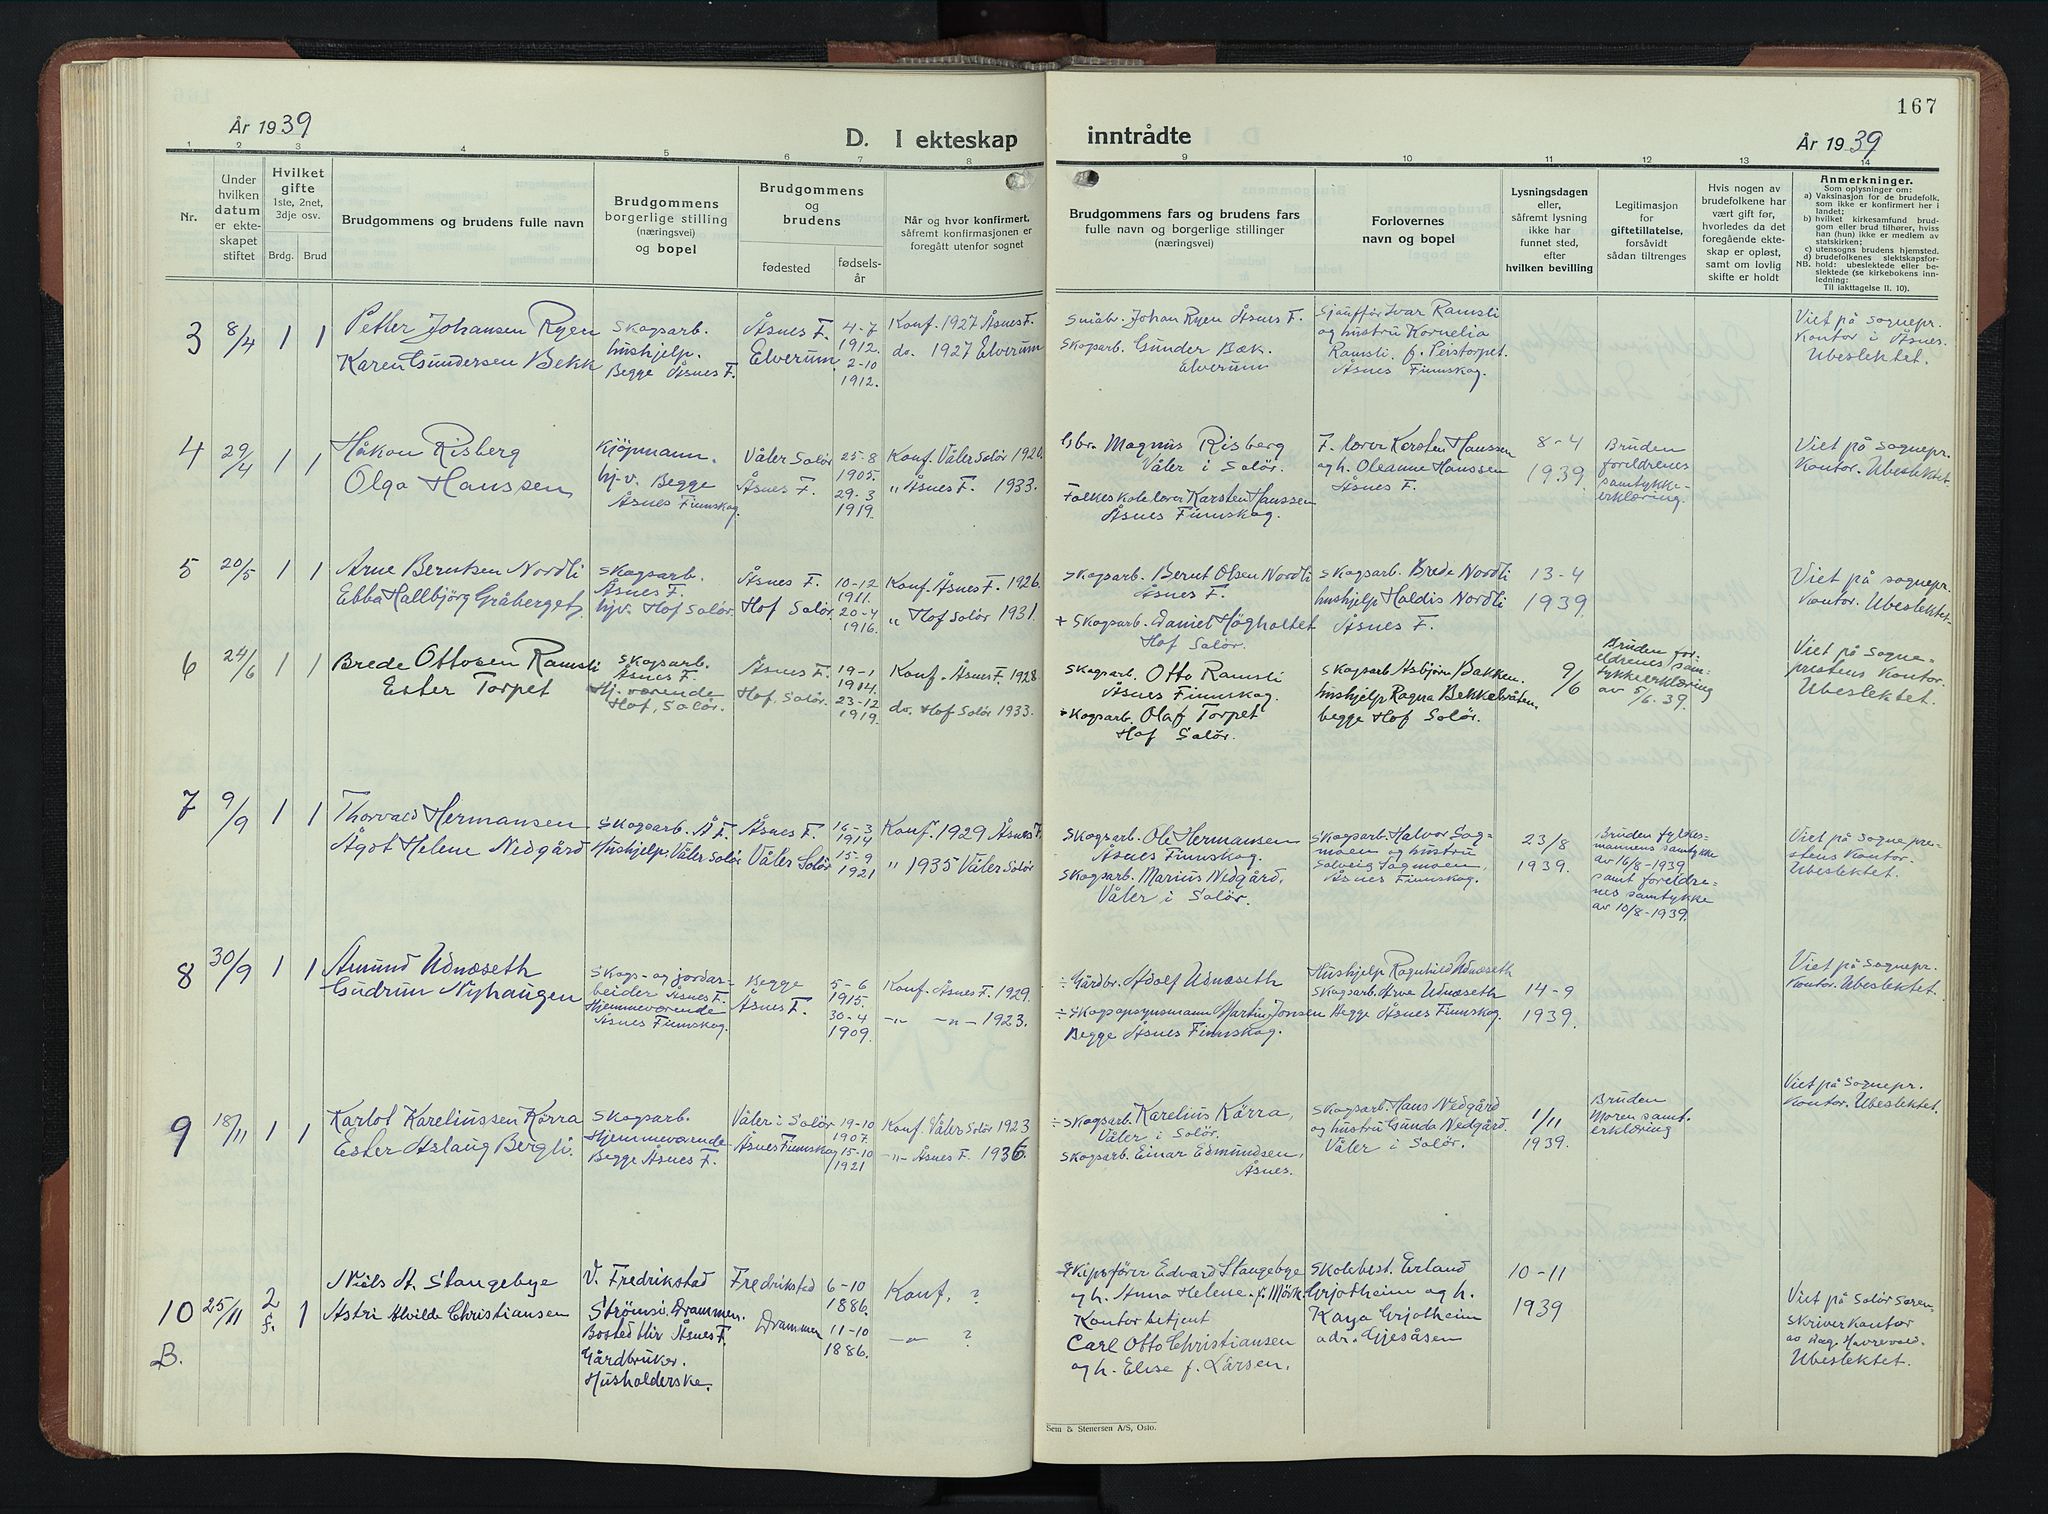 År 1939
D. I ekteskap
inntrådte
167
År 1939
1 2 3 4 5 6 7 8 9 10 11 12 13 14
Nr.
Under
hvilken
datum
er ekte-
skapet
stiftet
Hvilket
gifte
1ste, 2net,
3dje osv.
Brdg. Brud
Brudgommens og brudens fulle navn
Brudgommens
borgerlige stilling
(næringsvei)
og bopel
Brudgommens
og
brudens
fødested
fødsels-
år
Når og hvor konfirmert,
såfremt konfirmasjonen er
foregått utenfor sognet
Brudgommens fars og brudens fars
fulle navn og borgerlige stillinger
(næringsvei)
Forlovernes
navn og bopel
Lysningsdagen
eller,
såfremt lysning
ikke har
funnet sted,
efter
hvilken bevilling
Legitimasjon
for
giftetillatelse,
forsåvidt
sådan tiltrenges
Hvis nogen av
brudefolkene har
vært gift før,
hvorledes da det
foregående ekte-
skap er opløst,
samt om lovlig
skifte er holdt
Anmerkninger.
Som oplysninger om:
a) Vaksinasjon for de brudefolk,
som ikke er konfirmert her i
landet;
b) hvilket kirkesamfund brud-
gom eller brud tilhører, hviss
han (hun) ikke er medlem av
statskirken;
c) utensogns brudens hjemsted.
d) brudefolkenes slektskapsfor-
NB. hold: ubeslektede eller be-
slektede (se kirkebokens inn-
ledning:
Til iakttagelse II. 10).
3 8/4 1 1
Petter Johansen Ryen
Karen Gundersen Bekk
Skogsarb.
hushjelp.
Begge Åsnes F.
Åsnes F.
Elverum
4-7
1912.
2-10
1912.
Konf. 1927 Åsnes F.
do. 1927 Elverum
Småbr. Johan Ryen Åsnes F.
Skogsarb. Gunder Bæk.
Elverum
Sjåuffør Ivar Ramsli
og hustru Kornelia
Ramsli f. Peistorpet.
Åsnes Finnskog.
Viet på sognepr.
kontor i Åsnes.
Ubeslektet.
4 29/4 1 1
Håkon Risberg
Olga Hanssen
Kjöpmann.
hj.v. Begge
Åsnes Finnskog
Våler Solör
Åsnes F.
25-8
1905.
29-3
1919.
Konf. Våler Solör 1920.
" Åsnes F. 1933.
Gbr. Magnus Risberg
Våler i Solör.
Folkeskolelærer Karsten Hanssen
Åsnes Finnskog.
F. lærer Karsten Hanssen
og h. Oleanne Hanssen
Åsnes F.
8-4
1939.
Bruden
foreldrenes
samtykke-
erklæring.
Viet på sognepr.
kontor. Ubeslektet.
5 20/5 1 1
Arne Berntsen Nordli
Ebba Hallbjørg Gråberget
Skogsarb.
Åsnes F.
hjv. Hof Solör.
Åsnes F.
Hof Solör.
10-12
1911.
20-4
1916.
Konf. Åsnes F. 1926.
" Hof Solör 1931.
Skogsarb. Bernt Olsen Nordli
Åsnes F.
+ Skogsarb. Daniel Högholtet
Hof Solör.
Skogsarb. Brede Nordli
hushjelp Haldis Nordli
Åsnes F.
13-4
1939
Viet på sognepr.
kontor. Ubeslektet.
6 24/6 1 1
Brede Ottosen Ramsli
Ester Torpet
Skogsarb.
Åsnes F.
Hj. værende
Hof, Solör.
Åsnes F.
Hof, Solör.
19-1
1914.
23-12
1919.
Konf. Åsnes F. 1928.
do. Hof Solör 1933.
Skogsarb. Otto Ramsli
Åsnes Finnskog.
Skogsarb. Olaf Torpet
Hof Solör.
Skogsarb Asbjörn Bakken.
hushjelp Ragna Bekkelvåten.
begge Hof Solör.
9/6
Bruden for-
eldrenes sam-
tykkeerklæring
av 5/6.39.
Viet på Sogne-
prestens kontor.
Ubeslektet.
7 9/9 1 1
Thorvald Hermansen
Ågot Helene Nedgård
Skogsarb. Å F.
Hushjelp, Våler Solör
Åsnes F.
Våler Solör
16-3
1914
15-9
1921
Konf. 1929 Åsnes F.
" 1935 Våler Solör
Skogsarb. Ole Hermansen
Åsnes Finnskog.
Skogsarb. Marius Nedgård,
Våler i Solör.
Skogsarb. Halvor Sag-
moen og hustru
Solveig Sagmoen,
Åsnes Finnskog.
23/8
1939.
Bruden fylkes-
mannens samtykke
av 16/8-1939
samt foreldre-
nes samtykke
av 10/8-1939.
Viet på Sognepre-
stens kontor.
Ubeslektet.
8 30/9 1 1
Amund Udnæseth
Gudrun Nyhaugen
Skogs- og jordar-
beider Åsnes F.
Hjemmeværende
Åsnes Finnskog.
Begge
Åsnes F.
5-6
1915.
30-4
1909.
Konf. Åsnes F. 1929.
-"- -"- 1923.
÷ Gårdbr. Adolf Udnæseth
÷ Skogsopsynsmann Martin Jonsen
Begge Åsnes Finnskog.
Hushjelp Ragnhild Udnæseth
Skogsarb. Arve Udnæseth
Begge Åsnes Finnskog.
14-9
1939.
Viet på Sognepr.
kontor. Ubeslektet.
9 18/11 1 1
Karlot Kareliussen Kårra
Ester Aslaug Bergli.
Skogsarb.
Hjemmeværende
Begge Åsnes F.
Våler i Solör
Åsnes Finnskog
19-10
1907.
15-10
1921
Konf. Våler Solör 1923
-"- Åsnes F. 1936.
÷ Skogsarb. Karelius Kårra,
Våler i Solör.
Skogsarb. Einar Edmundsen,
Åsnes.
Skogsarb. Hans Nedgård
og hustru Gunda Nedgård.
Våler i Solör.
1/11
1939.
Bruden
Moren samt.
erklæring
Viet på Sognepr.
kontor. Ubeslektet.
10 25/11 2 f. 1
B.
Niels A. Stangebye
Astri Alvilde Christiansen
V. Fredrikstad
Strømsö. Drammen.
Bosted hir Åsnes F.
Gårdbruker.
Husholderske.
Fredrikstad
Drammen
6-10
1886.
11-10
1886.
Konf. ?
-"- ?
Skipsfører Edvard Stangebye
og h. Anna Helene f. Mörk.
Kontorbetjent
Carl Otto Christiansen
og h. Elise f. Larsen.
Skolebest. Erland
Grjotheim og h.
Kaya Grjotheim
adr. Gjesåsen
10-11
1939
Viet på Solör Soren-
skriverkontor
av Dag. Havrevold.
Ubeslektet.
Sem & Stenersen A/S, Oslo.